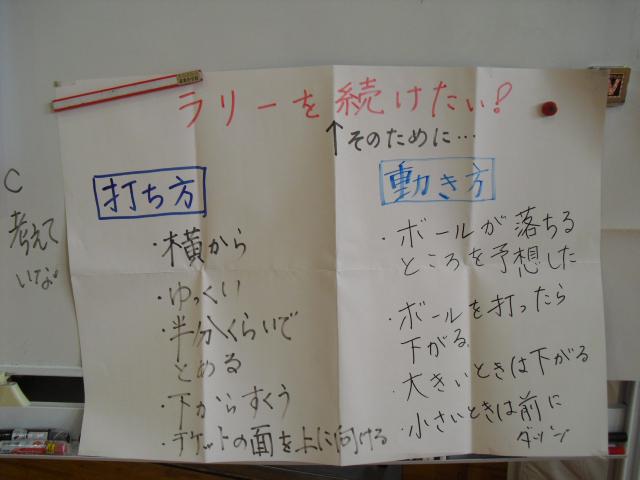 ラリーを続けたい!
↑そのために…
打ち方
・横から
・ゆっくい
・半分くらいで
とめる
・下からすくう
・チケットの面を上に向ける
動き方
・ボールが落ちる
ところを予想した
・ボールを打ったら
下がる
・大きいときは下がる
・小さいときは前に
ダッシ
C
考えて
いな